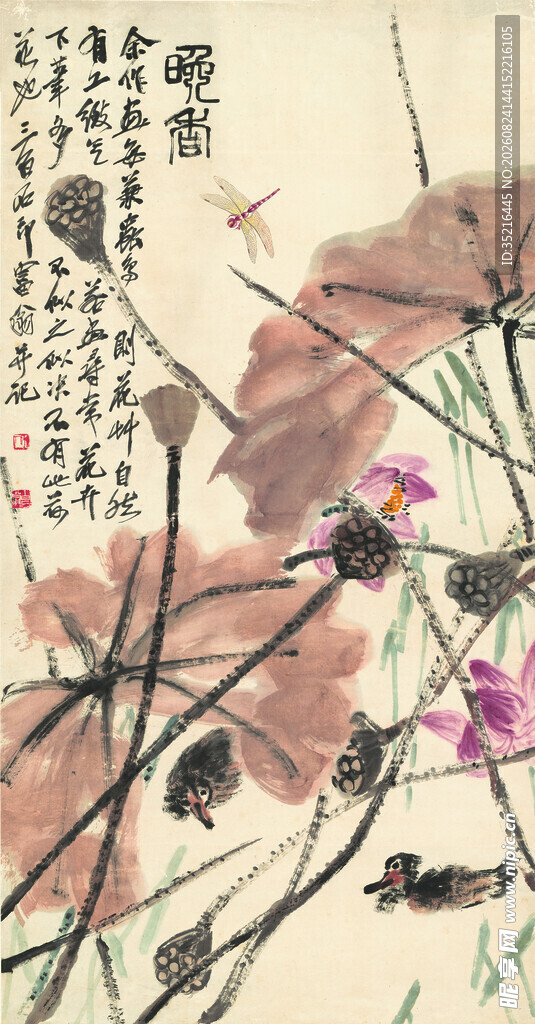 晚香
余作画每兼蟲鸟則花艸自然
有工緻气若画尋常花卉
下筆多不似之似决不有此荷
花也三百石印富翁并记
ID:35216445 NO:20260824144152216105
昵享网 www.nipic.cn